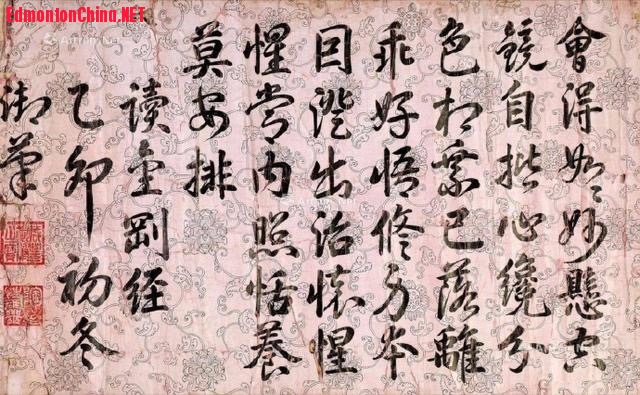 EdmontonChina.NET
會得如々妙懸空
鏡自揩心纔分
色相業已落離
乖好悟修身本
回澄出治懷惺
惺常内照恬養
莫安排
读金剛经
乙卯初冬
御筆